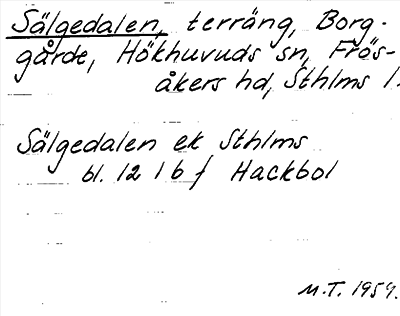 Sälgedalen, terräng, Borg-
gårde, Hökhuvuds sn, Frös-
åkers hd, Sthlms l.
Sälgedalen ek Sthlms
bl. 12 l b f Hackbol
M.T. 1959.